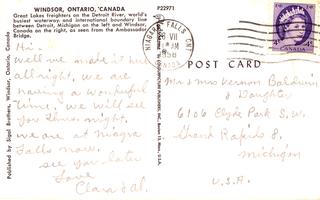 WINDSOR, ONTARIO, CANADA
Great Lakes freighters on the Detroit River, world's
busiest waterway and international boundary line
between Detroit, Michigan on the left and Windsor,
Canada on the right, as seen from the Ambassador
Bridge.
P22971
Hi -
well we made it here
allright, we are
having a wonderful
time. we will see
you thurs. night.
we are at Niagra
Falls now.
see you later
Love
Clara & Al.
Published by Sigal Brothers, Windsor, Ontario, Canada
NIAGARA FALLS ONT
VII
AM
1958
CANADA
POST CARD
Mr & Mrs Vernon Baldwin
& Daughter
6106 Clyde Park S.W.
Grand Rapids 8,
Michigan
U.S.A.